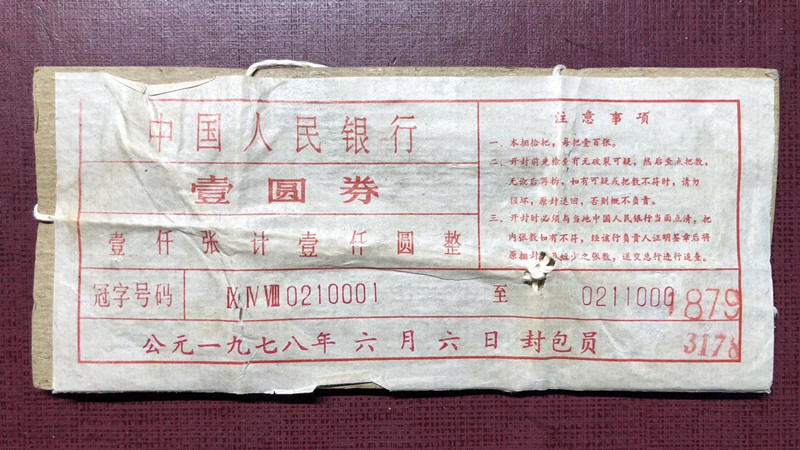 中国人民银行
壹圆券
壹仟张计壹仟圆整
注意事项
一、本捆拾把，每把壹百张。
二、开封前先检查有无破裂可疑，然后查点把数，
无讹后再拆，如有可疑或把数不符时，请勿
损坏，原封退回，否则概不负责。
三、开封时必须与当地中国人民银行当面点清，把
内张数如有不符，经该行负责人证明签章后将
原捆封 短少之张数，送交总行进行追查。
冠字号码 ⅨⅣⅧ0210001 至 0211000
1879
公元一九七八年六月六日 封包员
3178